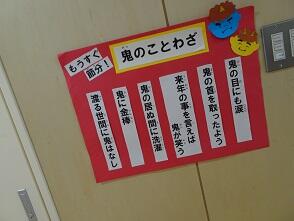 もうすぐ
節分！
鬼のことわざ
鬼の目にも涙
鬼の首を取ったよう
来年の事を言えば
鬼が笑う
鬼の居ぬ間に洗濯
鬼に金棒
渡る世間に鬼はなし